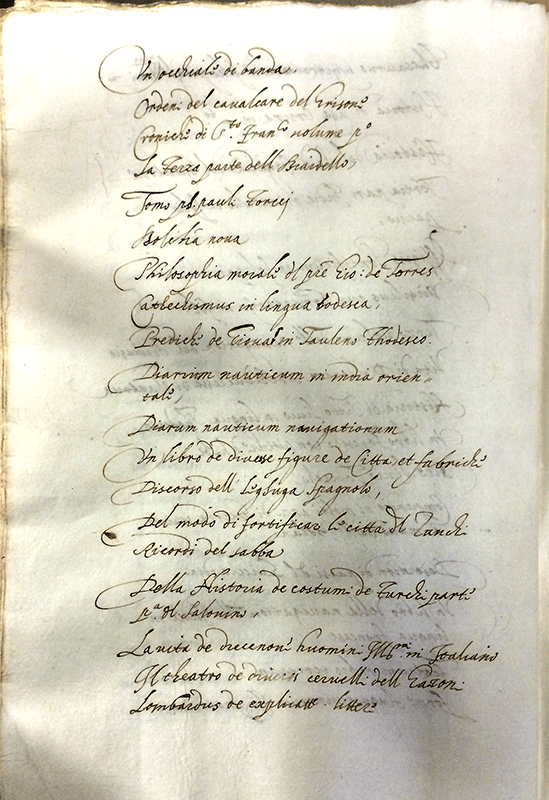 Un occhiale di banda,
Ordeni del cavalcare del Grisone
Croniche di Sto Franco volume po
La Terza parte dell
Tomo po. pauli
nova
Philosophia morale dl pre Gio: de Torres
Cathechismus in lingua todesca,
Prediche de Tioualin Tauleno Thodesco.
Diarium nauticum in india orien=
tale,
Diarum nauticum navigationum
Un libro de diverse figure de Citta, et fabriche
Discorso dell Spagnolo,
Del modo di fortificar le città dl
Ricordi del sabba
Della Historia de costumi de Turchi parte
pa dl
La vita de dicenone huomini in Italiano
Il theatro de diversi cervelli dell Garzoni
Lombardus de explicatte. littere